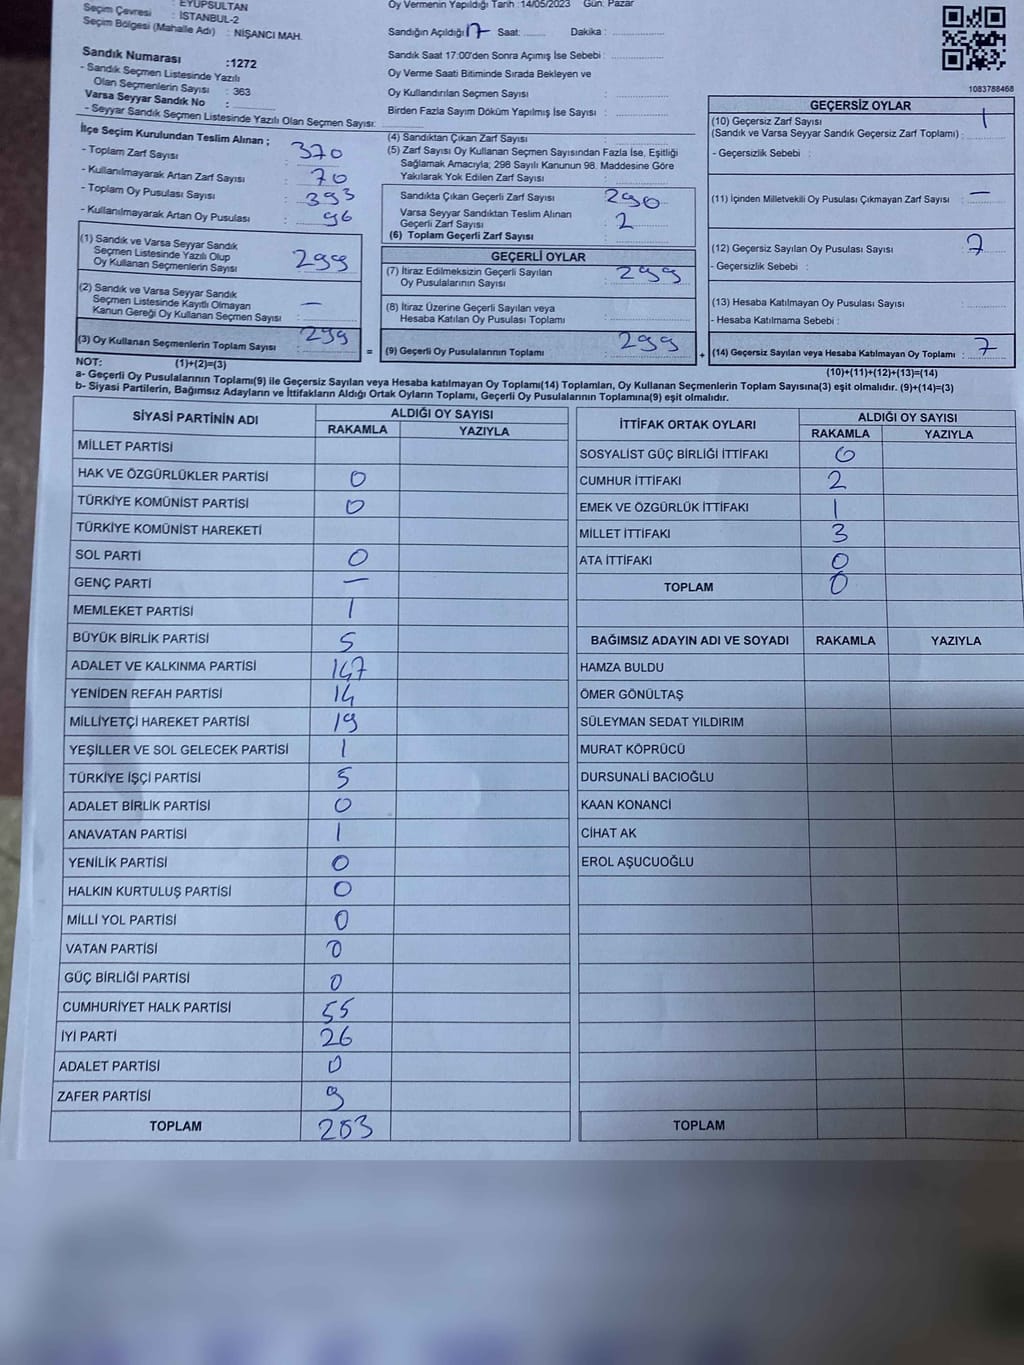 Seçim Çevresi : EYÜPSULTAN
: İSTANBUL-2
Seçim Bölgesi (Mahalle Adı) : NİŞANCI MAH.
Sandık Numarası :1272
- Sandık Seçmen Listesinde Yazılı
Olan Seçmenlerin Sayısı : 363
Varsa Seyyar Sandık No :
- Seyyar Sandık Seçmen Listesinde Yazılı Olan Seçmen Sayısı:
Oy Vermenin Yapıldığı Tarih :14/05/2023 Gün: Pazar
Sandığın Açıldığı 17 Saat: Dakika :
Sandık Saat 17:00'den Sonra Açımış İse Sebebi :
Oy Verme Saati Bitiminde Sırada Bekleyen ve
Oy Kullandırılan Seçmen Sayısı :
Birden Fazla Sayım Döküm Yapılmış İse Sayısı :
1083788468
İlçe Seçim Kurulundan Teslim Alınan ;
- Toplam Zarf Sayısı : 370
- Kullanılmayarak Artan Zarf Sayısı : 70
- Toplam Oy Pusulası Sayısı : 393
- Kullanılmayarak Artan Oy Pusulası : 96
(1) Sandık ve Varsa Seyyar Sandık
Seçmen Listesinde Yazılı Olup
Oy Kullanan Seçmenlerin Sayısı : 299
(2) Sandık ve Varsa Seyyar Sandık
Seçmen Listesinde Kayıtlı Olmayan
Kanun Gereği Oy Kullanan Seçmen Sayısı : —
(3) Oy Kullanan Seçmenlerin Toplam Sayısı : 299
(1)+(2)=(3)
(4) Sandıktan Çıkan Zarf Sayısı :
(5) Zarf Sayısı Oy Kullanan Seçmen Sayısından Fazla İse, Eşitliği
Sağlamak Amacıyla; 298 Sayılı Kanunun 98. Maddesine Göre
Yakılarak Yok Edilen Zarf Sayısı :
Sandıkta Çıkan Geçerli Zarf Sayısı : 290
Varsa Seyyar Sandıktan Teslim Alınan
Geçerli Zarf Sayısı : 2
(6) Toplam Geçerli Zarf Sayısı :
GEÇERLİ OYLAR
(7) İtiraz Edilmeksizin Geçerli Sayılan
Oy Pusulalarının Sayısı : 299
(8) İtiraz Üzerine Geçerli Sayılan veya
Hesaba Katılan Oy Pusulası Toplamı :
= (9) Geçerli Oy Pusulalarının Toplamı : 299 +
GEÇERSİZ OYLAR
(10) Geçersiz Zarf Sayısı
(Sandık ve Varsa Seyyar Sandık Geçersiz Zarf Toplamı) : 1
- Geçersizlik Sebebi :
(11) İçinden Milletvekili Oy Pusulası Çıkmayan Zarf Sayısı : —
(12) Geçersiz Sayılan Oy Pusulası Sayısı : 7
- Geçersizlik Sebebi :
(13) Hesaba Katılmayan Oy Pusulası Sayısı :
- Hesaba Katılmama Sebebi :
(14) Geçersiz Sayılan veya Hesaba Katılmayan Oy Toplamı : 7
(10)+(11)+(12)+(13)=(14)
NOT:
a- Geçerli Oy Pusulalarının Toplamı(9) ile Geçersiz Sayılan veya Hesaba katılmayan Oy Toplamı(14) Toplamları, Oy Kullanan Seçmenlerin Toplam Sayısına(3) eşit olmalıdır. (9)+(14)=(3)
b- Siyasi Partilerin, Bağımsız Adayların ve İttifakların Aldığı Ortak Oyların Toplamı, Geçerli Oy Pusulalarının Toplamına(9) eşit olmalıdır.
SİYASİ PARTİNİN ADI ALDIĞI OY SAYISI
RAKAMLA YAZIYLA
MİLLET PARTİSİ
HAK VE ÖZGÜRLÜKLER PARTİSİ 0
TÜRKİYE KOMÜNİST PARTİSİ 0
TÜRKİYE KOMÜNİST HAREKETİ
SOL PARTİ 0
GENÇ PARTİ —
MEMLEKET PARTİSİ 1
BÜYÜK BİRLİK PARTİSİ 5
ADALET VE KALKINMA PARTİSİ 147
YENİDEN REFAH PARTİSİ 14
MİLLİYETÇİ HAREKET PARTİSİ 19
YEŞİLLER VE SOL GELECEK PARTİSİ 1
TÜRKİYE İŞÇİ PARTİSİ 5
ADALET BİRLİK PARTİSİ 0
ANAVATAN PARTİSİ 1
YENİLİK PARTİSİ 0
HALKIN KURTULUŞ PARTİSİ 0
MİLLİ YOL PARTİSİ 0
VATAN PARTİSİ 0
GÜÇ BİRLİĞİ PARTİSİ 0
CUMHURİYET HALK PARTİSİ 55
İYİ PARTİ 26
ADALET PARTİSİ 0
ZAFER PARTİSİ 9
TOPLAM 283
İTTİFAK ORTAK OYLARI ALDIĞI OY SAYISI
RAKAMLA YAZIYLA
SOSYALİST GÜÇ BİRLİĞİ İTTİFAKI 0
CUMHUR İTTİFAKI 2
EMEK VE ÖZGÜRLÜK İTTİFAKI 1
MİLLET İTTİFAKI 3
ATA İTTİFAKI 0
TOPLAM 0
BAĞIMSIZ ADAYIN ADI VE SOYADI RAKAMLA YAZIYLA
HAMZA BULDU
ÖMER GÖNÜLTAŞ
SÜLEYMAN SEDAT YILDIRIM
MURAT KÖPRÜCÜ
DURSUNALİ BACIOĞLU
KAAN KONANCİ
CİHAT AK
EROL AŞUCUOĞLU
TOPLAM